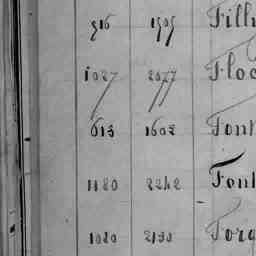 916 1505 Fill
1027 2077 Floc
613 1602 Font
1120 2242 Font
1020 2130 Forg